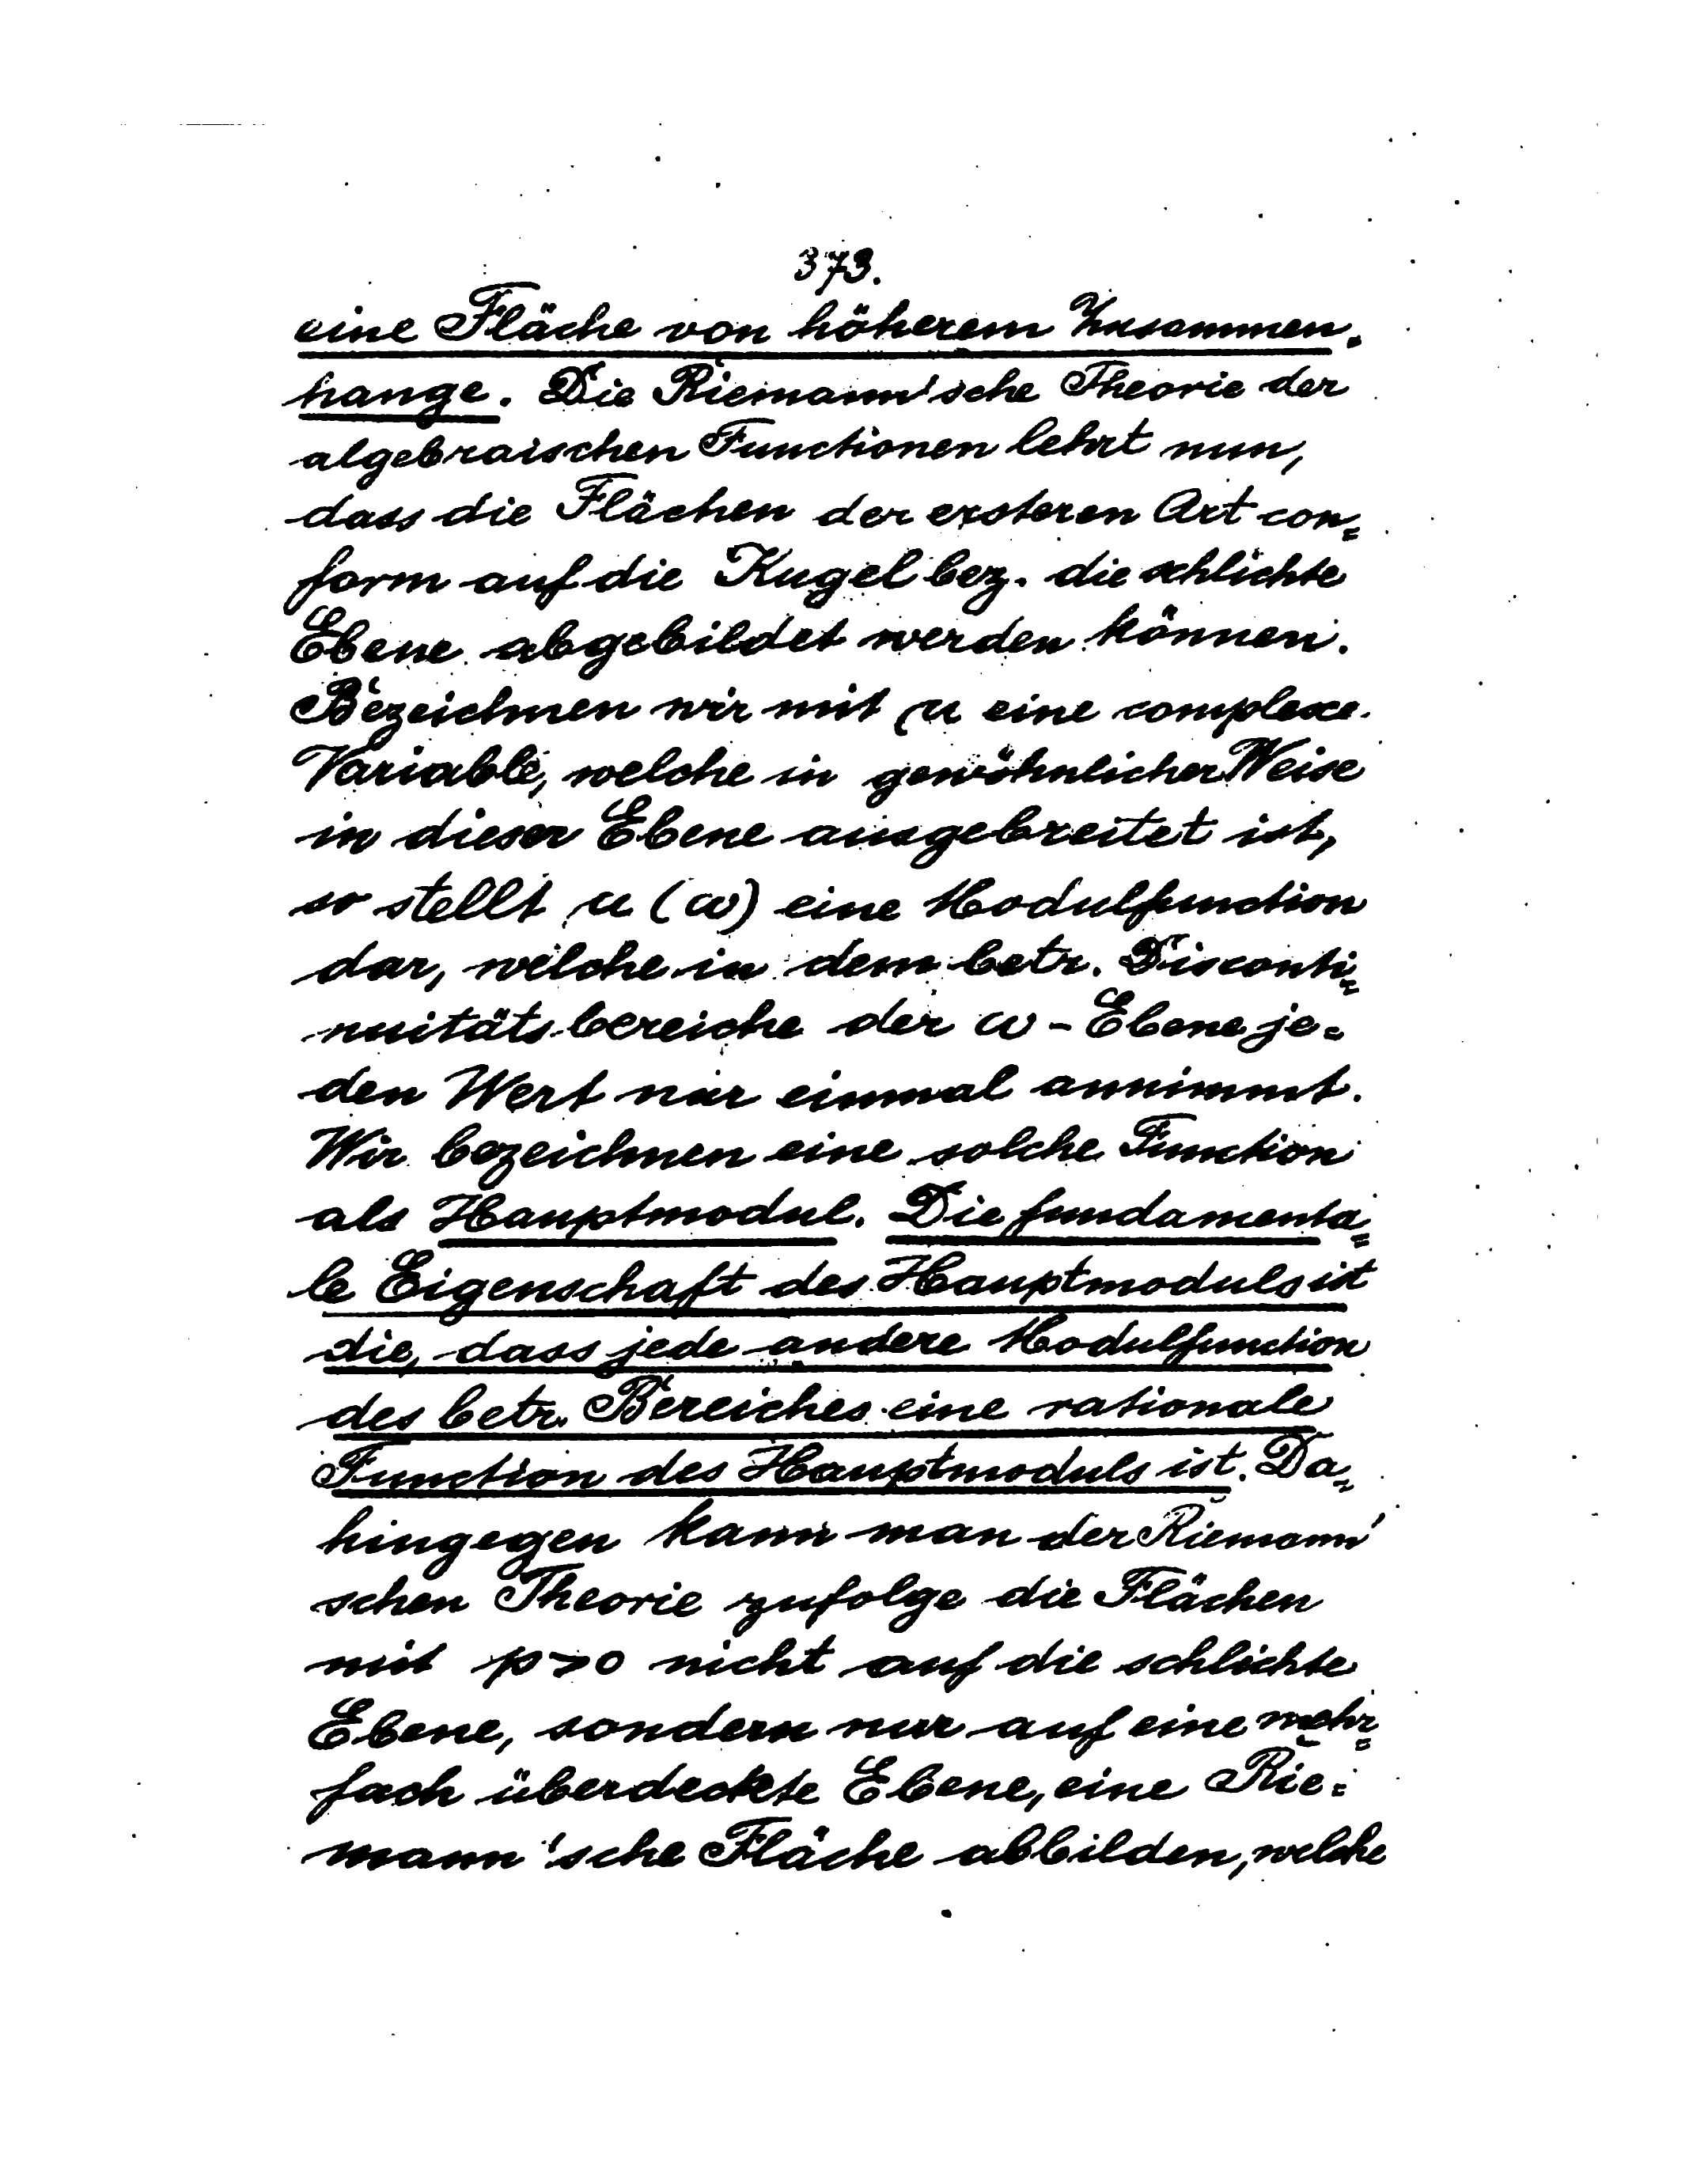 373.
eine Fläche von höherem Zusammen-
hange. Die Riemann'sche Theorie der
algebraischen Functionen lehrt nun,
dass die Flächen der ersteren Art con=
form auf die Kugel bez. die schlichte
Ebene abgebildet werden können.
Bezeichnen wir mit μ eine complexe
Variable, welche in gewöhnlicher Weise
in dieser Ebene ausgebreitet ist,
so stellt μ (ω) eine Modulfunction
dar, welche in dem betr. Disconti=
nuitätsbereiche der ω-Ebene je=
den Wert nur einmal annimmt.
Wir bezeichnen eine solche Function
als Hauptmodul. Die fundamenta=
le Eigenschaft des Hauptmoduls ist
die, dass jede andere Modulfunction
des betr. Bereiches eine rationale
Function des Hauptmoduls ist. Da=
hingegen kann man der Riemann'
schen Theorie zufolge die Flächen
mit p>0 nicht auf die schlichte
Ebene, sondern nur auf eine mehr=
fach überdeckte Ebene, eine Rie=
mann'sche Fläche abbilden, welche